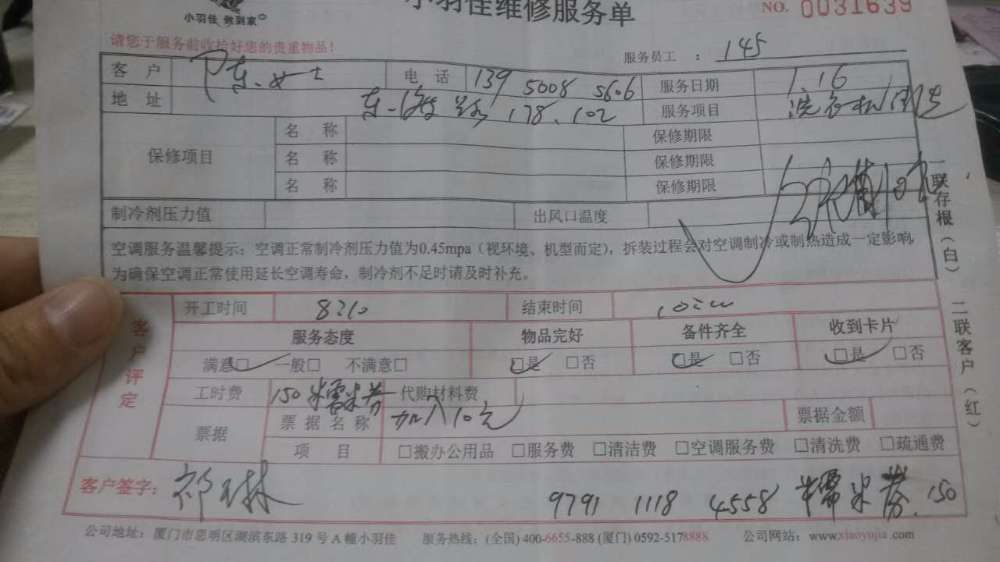 小羽佳 教到家
小羽佳维修服务单
NO. 0031639
请您于服务前收拾好您的贵重物品!
服务员工 : 145
客户 女士 电话 139 5008 5606 服务日期 1.16
地址 178.102 服务项目 洗衣机
保修项目
名称 保修期限
名称 保修期限
名称 保修期限
制冷剂压力值 出风口温度
空调服务温馨提示:空调正常制冷剂压力值为0.45mpa(视环境、机型而定),拆装过程会对空调制冷或制热造成一定影响,
为确保空调正常使用延长空调寿命,制冷剂不足时请及时补充。
一联存根(白) 二联客户(红)
客户评定
开工时间 结束时间
服务态度 物品完好 备件齐全 收到卡片
满意□ 一般□ 不满意□ □是 □否 □是 □否 □是 □否
工时费 150 糯米券 代购材料费
票据 票据名称 加入10元 票据金额
项目 □搬办公用品 □服务费 □清洁费 □空调服务费 □清洗费 □疏通费
客户签字:
9791 1118 4558 糯米券.150
公司地址:厦门市思明区湖滨东路 319 号 A 幢小羽佳 服务热线:(全国) 400-6655-888 (厦门) 0592-5178888 公司网站:www.xiaoyujia.com